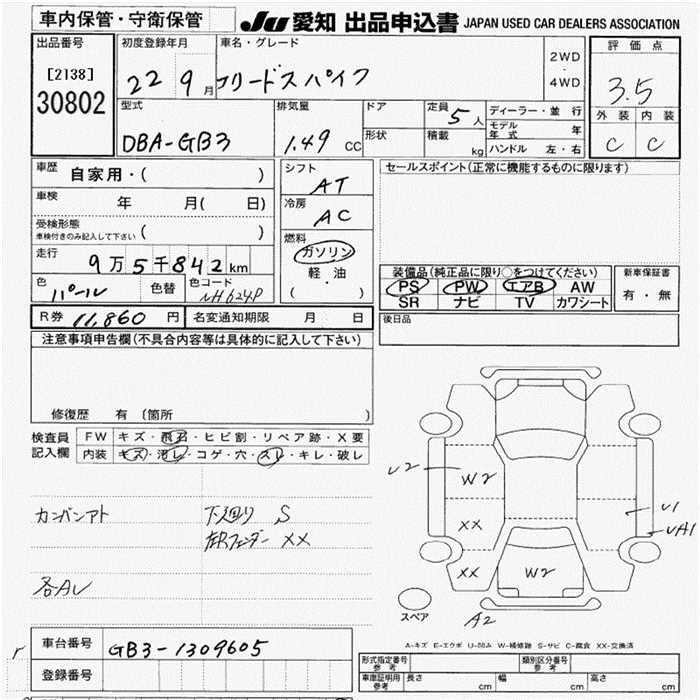 車内保管・守衛保管
JU 愛知 出品申込書 JAPAN USED CAR DEALERS ASSOCIATION
出品番号
[2138]
30802
初度登録年月
22 9月
車名・グレード
フリードスパイク
2WD
・
4WD
評価点
3.5
外装 内装
C C
型式
DBA-GB3
排気量
1.49 CC
ドア
形状
定員 5人
積載 kg
ディーラー・並行
モデル年式 年
ハンドル 左・右
車歴
自家用・( )
車検
年 月( 日)
受検形態
車検付きのみ記入して下さい ( )
走行
9万5千842km
色
パール
色替
色コード
NH624P
シフト
AT
冷房
AC
燃料
ガソリン
軽・油
( )
セールスポイント(正常に機能するものに限ります)
装備品(純正品に限り○をつけてください)
PS PW エアB AW
SR ナビ TV カワシート
新車保証書
有・無
R券 11,860 円
名変通知期限 月 日
後日品
注意事項申告欄(不具合内容等は具体的に記入して下さい)
修復歴 有 [箇所 ]
検査員記入欄
FW キズ・飛石・ヒビ割・リペア跡・X要
内装 キズ・汚レ・コゲ・穴・スレ・キレ・破レ
カンバンアト
下廻り S
左Rフェンダー XX
各AU
U2
W2
XX
XX
W2
U1
UA1
A2
スペア
A-キズ E-エクボ U-凹み W-補修跡 S-サビ C-腐食 XX-交換済
車台番号
GB3-1309605
登録番号
形式指定番号
参考
類別区分番号
参考
車庫証明用
参考
長さ cm
幅 cm
高さ cm